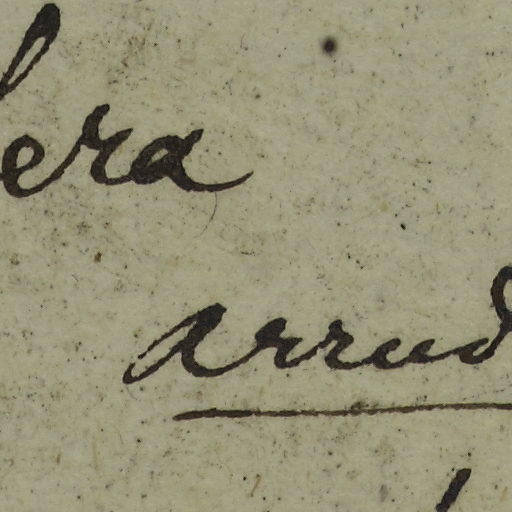 era
Arrud